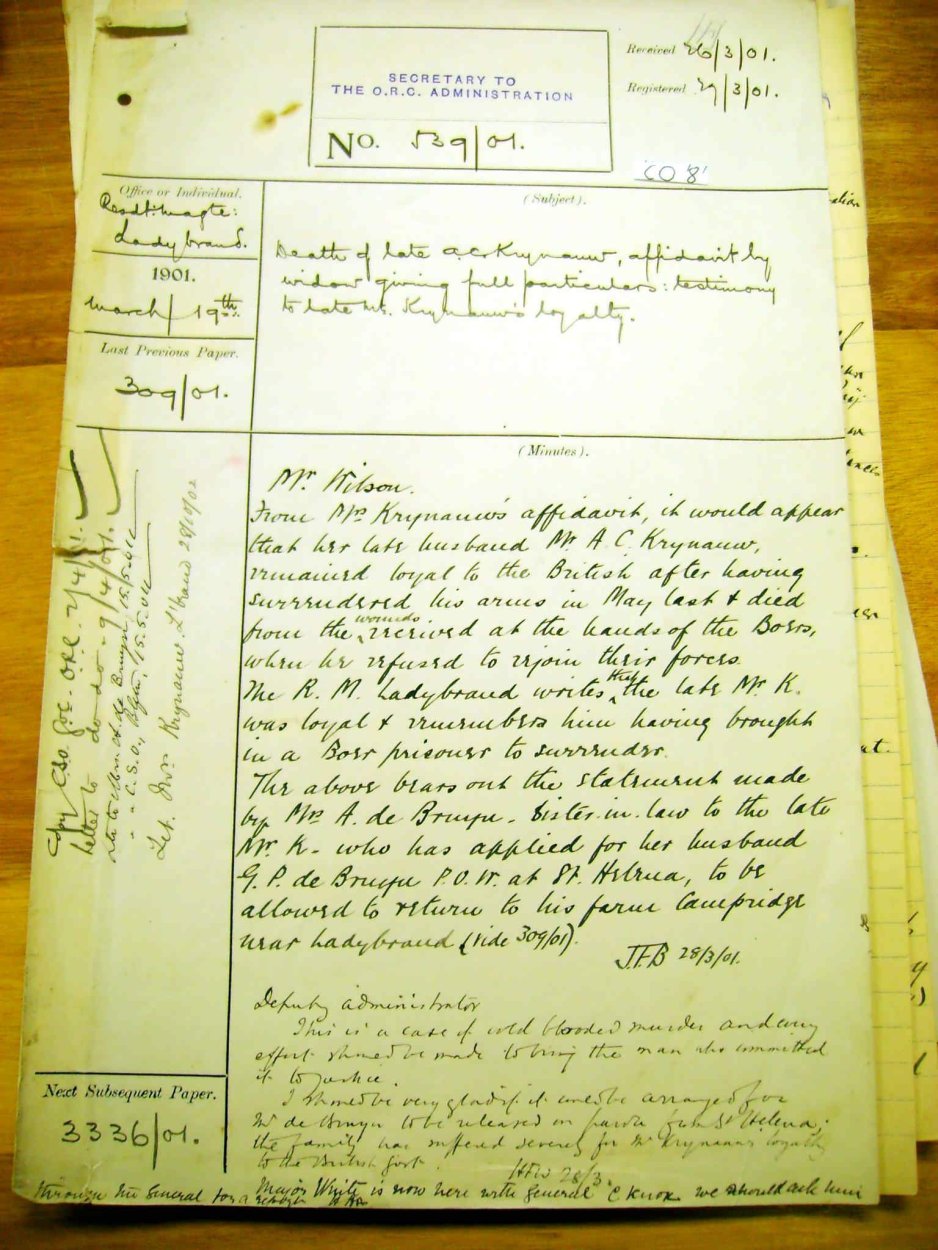 Received 26/3/01.
Registered 29/3/01.
SECRETARY TO
THE O.R.C. ADMINISTRATION
No. 539/01.
CO '8'
Office or Individual.
Resdt: Magte:
Ladybrand.
1901.
March/19th
Last Previous Paper.
309/01.
(Subject).
Death of late A.C. Krynauw, affidavit by
widow giving full particulars: testimony
to late Mr. Krynauw's loyalty.
(Minutes).
Mr Wilson.
From Mrs Krynauw's affidavit, it would appear
that her late husband Mr A. C. Krynauw,
remained loyal to the British after having
surrendered his arms in May last & died
from the wounds received at the hands of the Boers,
when he refused to rejoin their forces.
The R. M. Ladybrand writes that the late Mr K.
was loyal & remembers him having brought
in a Boer prisoner to surrender.
The above bears out the statement made
by Mrs A. de Bruyn - Sister-in-law to the late
Mr K - who has applied for her husband
G. P. de Bruyn P.O.W. at St. Helena, to be
allowed to return to his farm Campridge
near Ladybrand (vide 309/01).
JFB 28/3/01.
Deputy Administrator
This is a case of cold blooded murder and every
effort should be made to bring the man who committed
it to justice.
I should be very glad if it could be arranged for
Mr de Bruyn to be released on parole from St Helena;
the family has suffered severely for Mr Krynauw's loyalty
to the British Govt.
HFW 28/3.
Major White is now here with General C Knox we should ask him
through the General for a report
Copy CSO. GOC. ORC. 2/4/01.
Letter to do - do - 9/4/01.
Let. to Mrs A. de Bruyn 15/5/01
" " C.S.O., Bfn, 15.5.01
Let. Mrs Krynauw L'brand 28/10/02
Next Subsequent Paper.
3336/01.